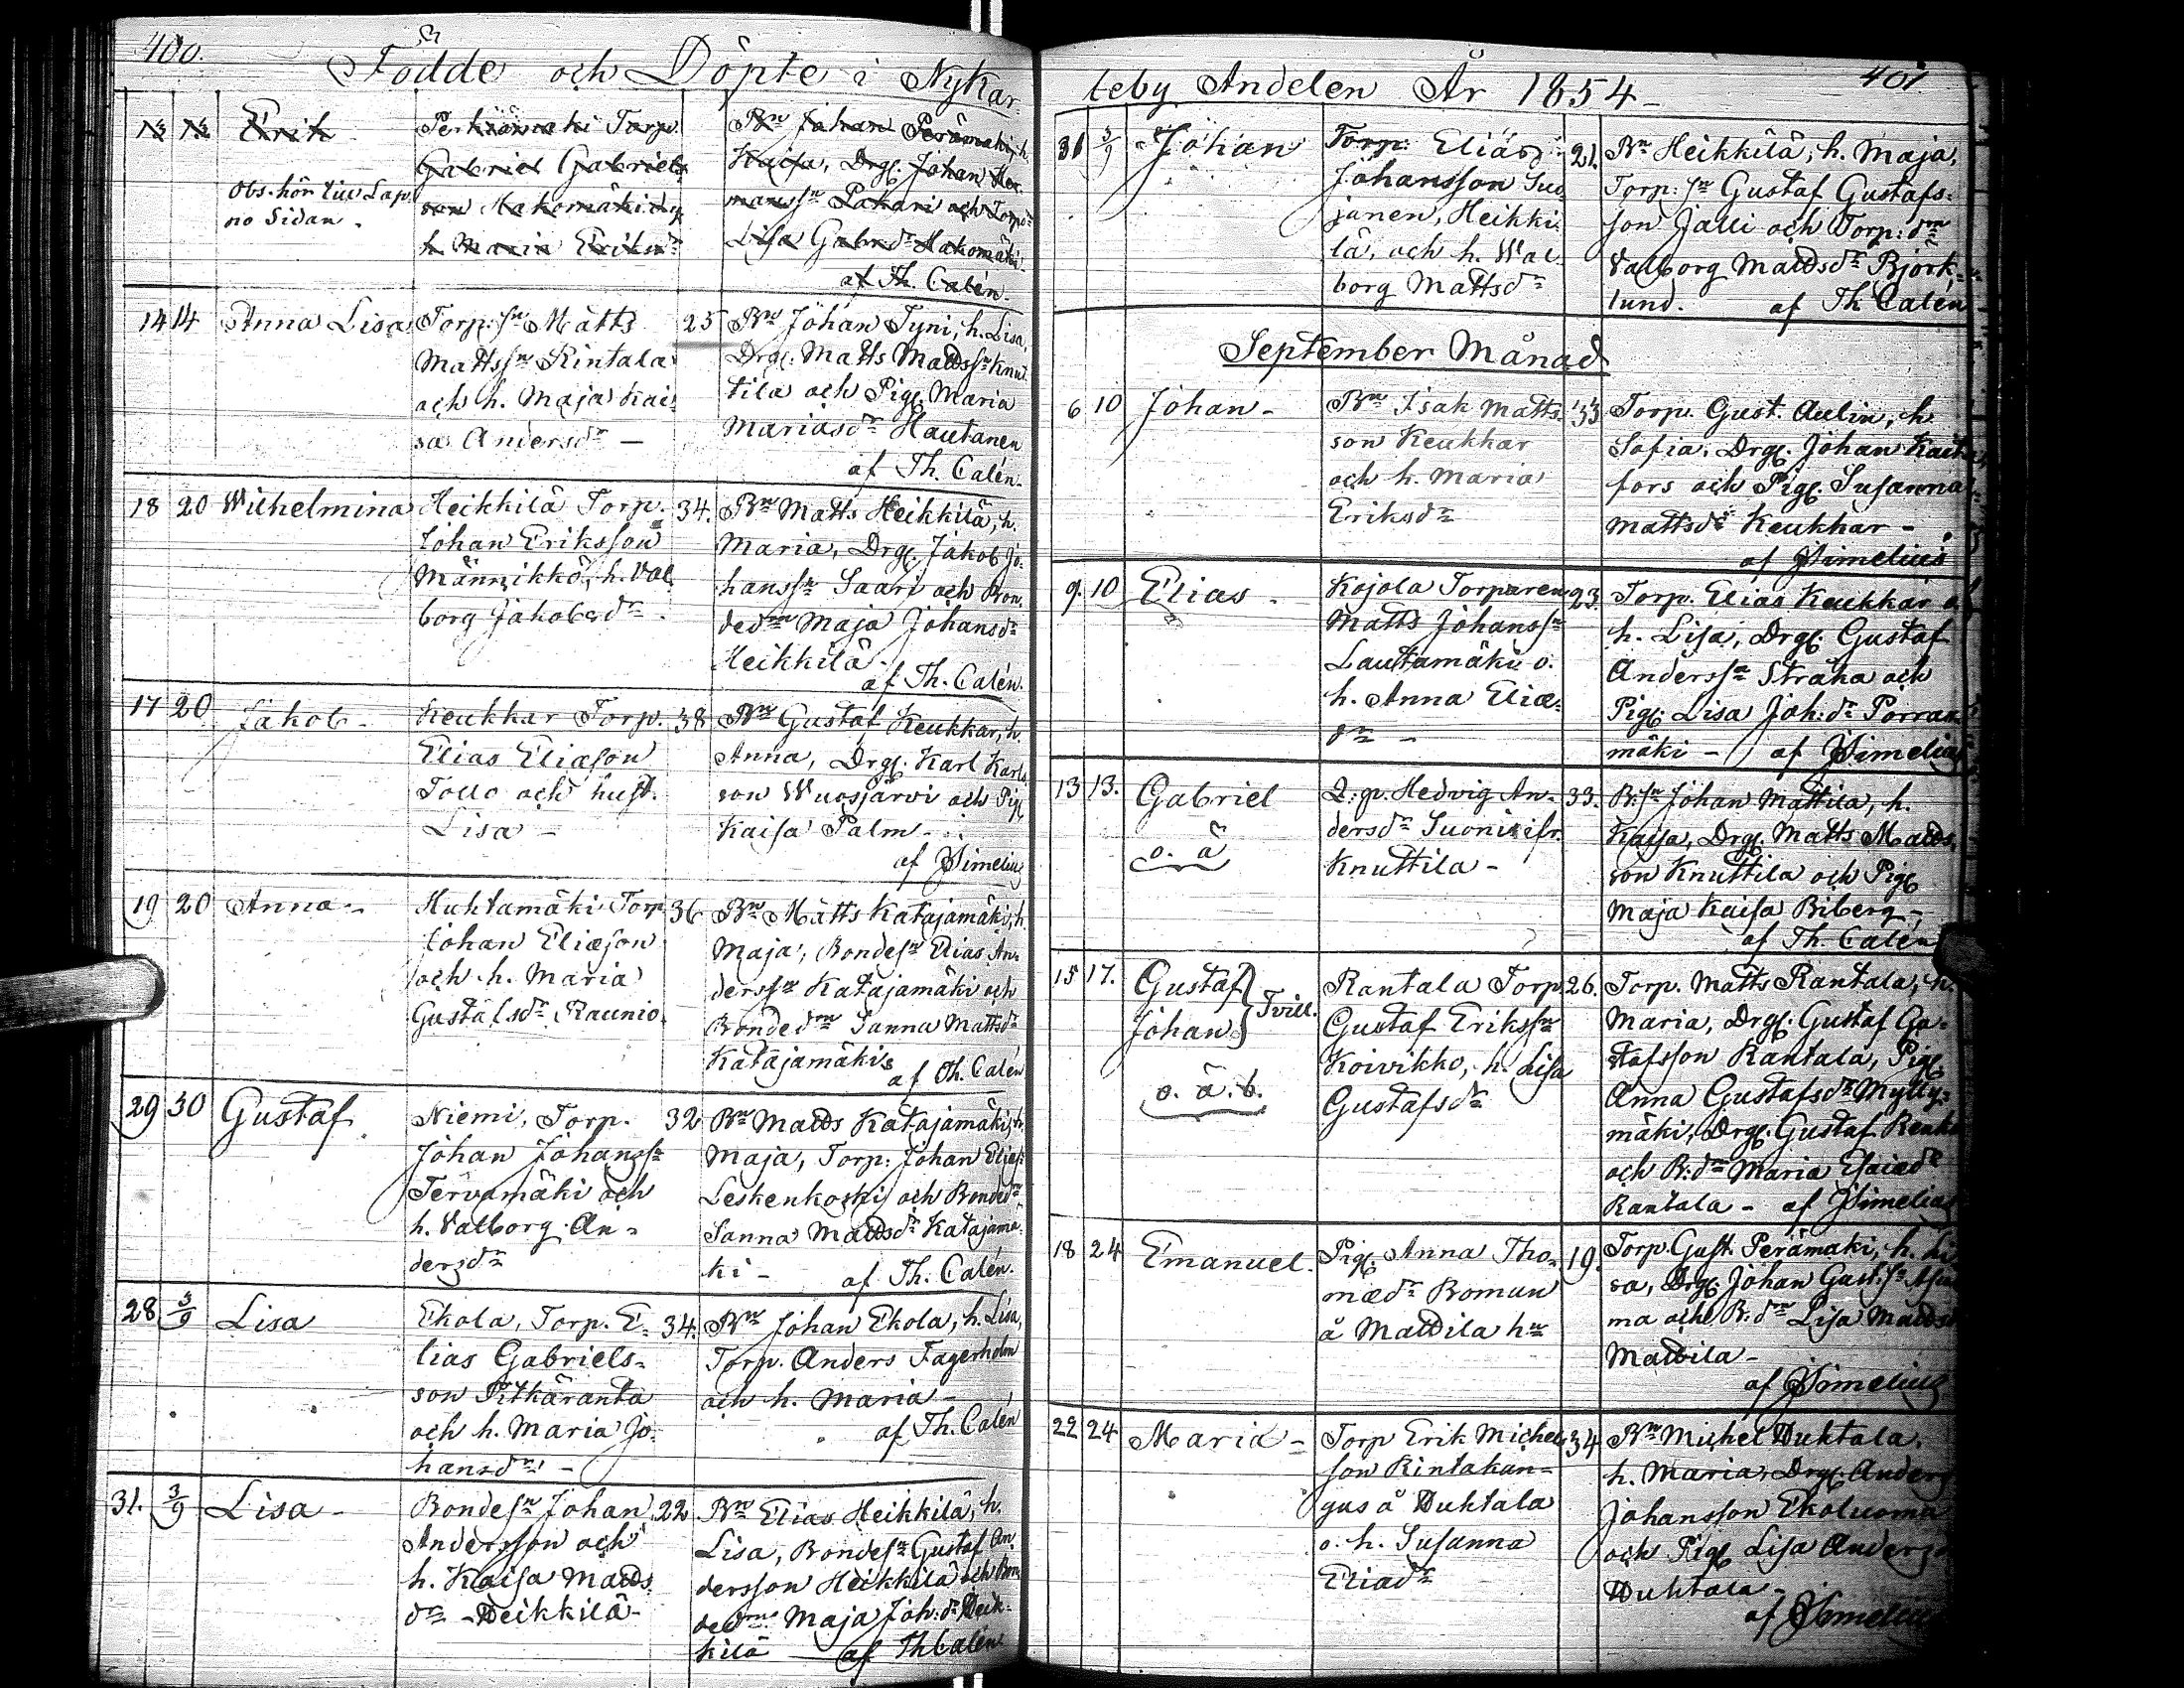 400.
Födde och Döpte i Nykar-
14 14 Erik
Perkiömäki Torp.
Gabriel Gabriels-
son Hakomäki
h. Maria Eriksdr
Obs. hör till Lap
no Sidan.
Bn Johan Perämäki, h.
Kaisa, Drg. Johan Her-
manssn Pakari och Torp:dr
Lisa Gabr.dr Hakomäki
af Th. Calén.
14 14 Anna Lisa
Torp:sn Matts
Mattssn Rintala
och h. Maja Kai-
sa Andersdr —
25
Bn Johan Tyni, h. Lisa,
Drg. Matts Mattssn Knut
tila och Pig. Maria
Mariasdr Hautanen
af Th. Calén.
18 20 Wilhelmina
Heikkilä Torp.
Johan Eriksson
Männikkö, h. Val
borg Jakobsdr.
34.
Bn Matts Heikkilä, h.
Maria, Drg. Jakob Jo-
hanssn Saari och Bon-
dedrn Maja Johansdr
Heikkilä.
af Th. Calén.
17 20 Jakob -
Keukkar Torp.
Elias Eliæson
Tollo och hust.
Lisa -
38
Bn Gustaf Keukkar, h.
Anna, Drg. Karl Karls
son Wuosjärvi och Pig
Kaisa Palm -
af JSimelius
19 20 Anna -
Huhtamäki Torp
Johan Eliæson
och h. Maria
Gustafsdr Raunio.
36
Bn Matts Katajamäki, h.
Maja, Bondesn Elias An-
derssn Katajamäki och
Bondedrn Sanna Mattsdr
Katajamäki
af Th. Calén
29 30 Gustaf.
Niemi, Torp.
Johan Johanssn
Tervamäki och
h. Valborg An-
dersdr
32
Bn Matts Katajamäki, h.
Maja, Torp. Johan Eliæs:
Leskenkoski och Bondedrn
Sanna Mattsdr Katajamä-
ki -
af Th. Calén.
28 3/9 Lisa
Ekola, Torp. E-
lias Gabriels-
son Pitkäranta
och h. Maria Jo-
hansdr -
34.
Bn Johan Ekola, h. Lisa,
Torp. Anders Fagerholm
och h. Maria -
af Th. Calén
31. 3/9 Lisa -
Bondesn Johan
Andersson och
h. Kaisa Matts
dr - Heikkilä -
22
Bn Elias Heikkilä, h.
Lisa, Bondesn Gustaf An-
dersson Heikkilä och Bon
dedrn Maja Joh:dr Heik-
kilä af Th Calén
401.
leby Andelen År 1854 -
31 3/9 Johan
Torp. Elias
Johansson Suo
janen, Heikki-
lä, och h. Wal-
borg Mattsdr
21.
Bn Heikkilä, h. Maja,
Torp:sn Gustaf Gustafs-
son Jalli och Torp:drn
Valborg Mattsdr Björk-
lund. af Th Calén
September Månad
6 10 Johan -
Bn Isak Matts-
son Keukkar
och h. Maria
Eriksdr
33
Torp. Gust. Aulin, h
Sofia, Drg. Johan Kait
fors och Pig. Susanna
Mattsdr Keukkar -
af JSimelius
9. 10 Elias -
Kojola Torparen
Matts Johanssn
Lautamäki o.
h. Anna Eliæ-
dr -
23.
Torp. Elias Keukkar o
h. Lisa, Drg. Gustaf
Anderssn Straka och
Pig. Lisa Joh:dr Porran
mäki - af JSimelius
13 13. Gabriel
o. ä
Q:p. Hedvig An-
dersdr Suoniki fr.
Knuttila -
33.
B:sn Johan Mattila, h.
Kaisa, Drg. Matts Matts
son Knuttila och Pig
Maja Kaisa Biberg -
af Th. Calén
15 17. Gustaf
Johan } Tvill.
o. ä. b.
Rantala Torp.
Gustaf Erikssn
Koivikko, h. Lisa
Gustafsdr
26.
Torp. Matts Rantala, h.
Maria, Drg. Gustaf Gu-
stafsson Rantala, Pig
Anna Gustafsdr Mylly-
mäki, Drg. Gustaf
och B:drn Maria Esaiædr
Rantala - af JSimelius
18 24 Emanuel.
Pig. Anna Tho-
mædr Roman
å Mattila hn
19.
Torp. Gust. Perämäki, h. Li
sa, Drg. Johan Gust:sn
ma och B:drn Lisa Mattsd
Mattila -
af JSimelius
22 24 Maria -
Torp Erik Michels
son Rintakan-
gus å Huhtala
o. h. Susanna
Eliædr
34
Bn Michel Huhtala,
h. Maria, Drg. Anders
Johansson Ekoluoma
och Pig. Lisa Anders
Huhtala -
af JSimelius